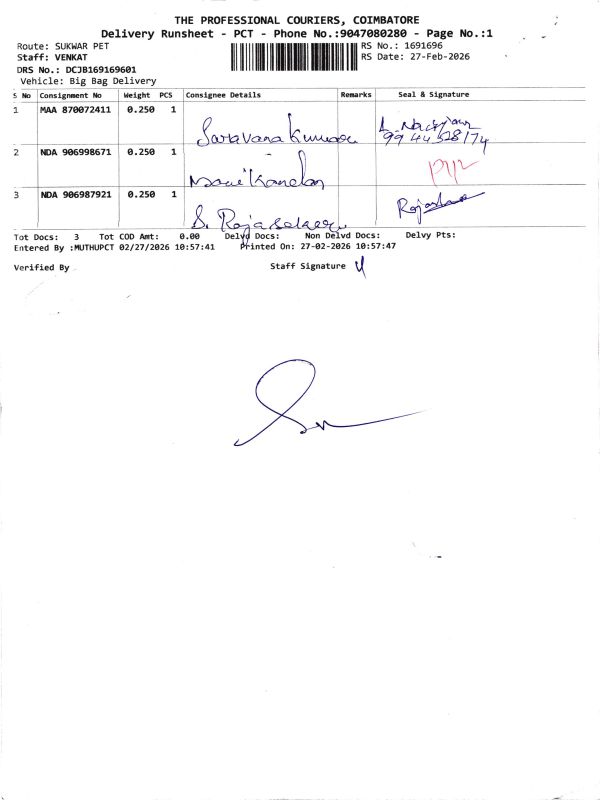 THE PROFESSIONAL COURIERS, COIMBATORE
Delivery Runsheet - PCT - Phone No.:9047080280 - Page No.:1
Route: SUKWAR PET RS No.: 1691696
Staff: VENKAT RS Date: 27-Feb-2026
DRS No.: DCJB169169601
Vehicle: Big Bag Delivery
S No Consignment No Weight PCS Consignee Details Remarks Seal & Signature
1 MAA 870072411 0.250 1 Saravana Kumar
2 NDA 906998671 0.250 1
3 NDA 906987921 0.250 1 S. Rajasekar
Tot Docs: 3 Tot COD Amt: 0.00 Delvd Docs: Non Delvd Docs: Delvy Pts:
Entered By :MUTHUPCT 02/27/2026 10:57:41 Printed On: 27-02-2026 10:57:47
Verified By Staff Signature